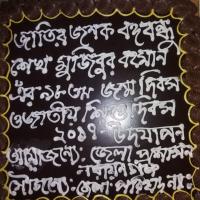 জাতির জনক বঙ্গবন্ধু
শেখ মুজিবুর রহমান
এর ৯৮তম জন্ম দিবস
ও জাতীয় শিশু দিবস
২০১৭ উদযাপন
আয়োজনেঃ জেলা প্রশাসন
সৌজন্যেঃ জেলা পরিষদ